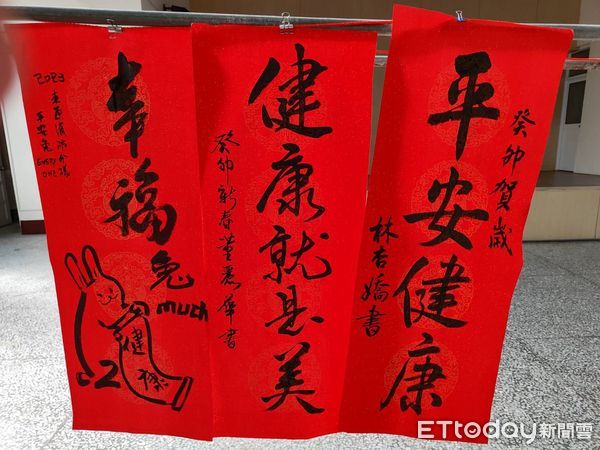 癸卯賀歲
平安健康
林杏嬌書
健康就是美
癸卯新春董書
幸福兔
much
2023
平安兔
EVERY
ONE
健
ETtoday新聞雲